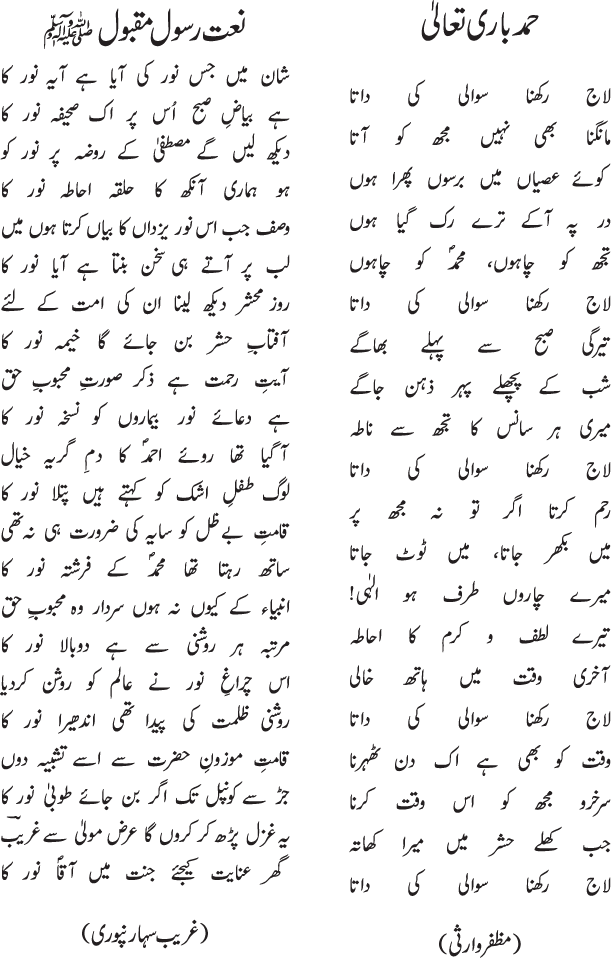 حمد باری تعالیٰ
لاج رکھنا سوالی کی داتا
مانگنا بھی نہیں مجھ کو آتا
کوئے عصیاں میں برسوں پھرا ہوں
در پہ آکے ترے رک گیا ہوں
تجھ کو چاہوں، محمدؐ کو چاہوں
لاج رکھنا سوالی کی داتا
تیرگی صبح سے پہلے بھاگے
شب کے پچھلے پہر ذہن جاگے
میری ہر سانس کا تجھ سے ناطہ
لاج رکھنا سوالی کی داتا
رحم کرتا اگر تو نہ مجھ پر
میں بکھر جاتا، میں ٹوٹ جاتا
میرے چاروں طرف ہو الٰہی!
تیرے لطف و کرم کا احاطہ
آخری وقت میں ہاتھ خالی
لاج رکھنا سوالی کی داتا
وقت کو بھی ہے اک دن ٹھہرنا
سرخرو مجھ کو اس وقت کرنا
جب کھلے حشر میں میرا کھاتہ
لاج رکھنا سوالی کی داتا
(مظفر وارثی)
نعت رسول مقبول ﷺ
شان میں جس نور کی آیا ہے آیہ نور کا
ہے بیاضِ صبح اُس پر اک صحیفہ نور کا
دیکھ لیں گے مصطفیٰ کے روضہ پر نور کو
ہو ہماری آنکھ کا حلقہ احاطہ نور کا
وصف جب اس نور یزداں کا بیاں کرتا ہوں میں
لب پر آتے ہی سخن بنتا ہے آیا نور کا
روز محشر دیکھ لینا ان کی امت کے لئے
آفتابِ حشر بن جائے گا خیمہ نور کا
آیتِ رحمت ہے ذکر صورتِ محبوبِ حق
ہے دعائے نور بیماروں کو نسخہ نور کا
آگیا تھا روئے احمدؐ کا دمِ گریہ خیال
لوگ طفلِ اشک کو کہتے ہیں پتلا نور کا
قامتِ بے ظل کو سایہ کی ضرورت ہی نہ تھی
ساتھ رہتا تھا محمدؐ کے فرشتہ نور کا
انبیاء کے کیوں نہ ہوں سردار وہ محبوبِ حق
مرتبہ ہر روشنی سے ہے دوبالا نور کا
اس چراغِ نور نے عالم کو روشن کردیا
روشنی ظلمت کی پیدا تھی اندھیرا نور کا
قامتِ موزونِ حضرت سے اسے تشبیہ دوں
جڑ سے کونپل تک اگر بن جائے طوبیٰ نور کا
یہ غزل پڑھ کر کروں گا عرض مولیٰ سے غریبؔ
گھر عنایت کیجئے جنت میں آقاؐ نور کا
(غریب سہارنپوری)